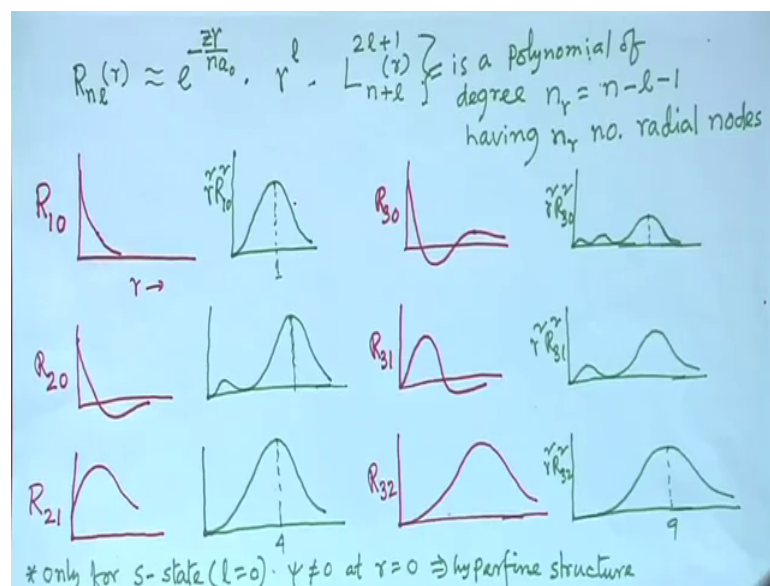 R_{nl}(r) ≈ e^{-zr/na₀} · r^l · L_{n+l}^{2l+1}(r) } = is a polynomial of
degree n_r = n-l-1
having n_r no. radial nodes
R₁₀
r²R²₁₀
R₃₀
r²R²₃₀
1
r →
R₂₀
R₃₁
r²R²₃₁
R₂₁
R₃₂
r²R²₃₂
4
9
* only for s-state (l=0). ψ≠0 at r=0 ⇒ hyperfine structure